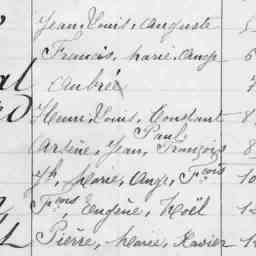 Jean, Louis, Auguste
Francis, Marie, Ange
Aubrée
Henri, Louis, Constant
Paul
Arsène, Jean, François
Jh, Marie, Ange, Fçois
Fçois, Eugène, Noël
Pierre, Marie, Xavier